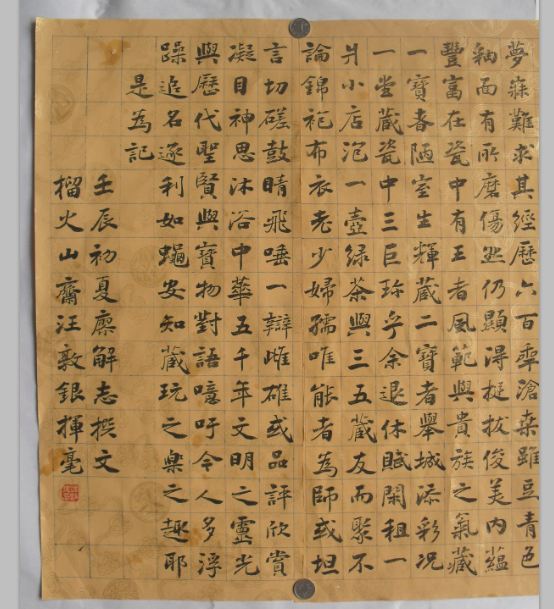 夢寐難求其經歷六百零滄桑雖豆青色
釉而有所磨傷然仍顯得挺拔俊美內蘊
豐富在瓷中有王者風範與貴族之氣藏
一寶者陋室生輝藏二寶者舉城添彩況
一堂藏瓷中三巨珍乎余退休賦閑租一
爿小店泡一壺綠茶與三五藏友而聚不
論錦袍布衣老少婦孺唯能者為師或坦
言切磋鼓睛飛唾一辯雌雄或品評欣賞
凝目神思沐浴中華五千年文明之靈光
與歷代聖賢與寶物對語噫吁今人多浮
躁追名逐利如蠅安知藏玩之樂之趣耶
是為記
壬辰初夏廖解志撰文
榴火山齋汪敦銀揮毫